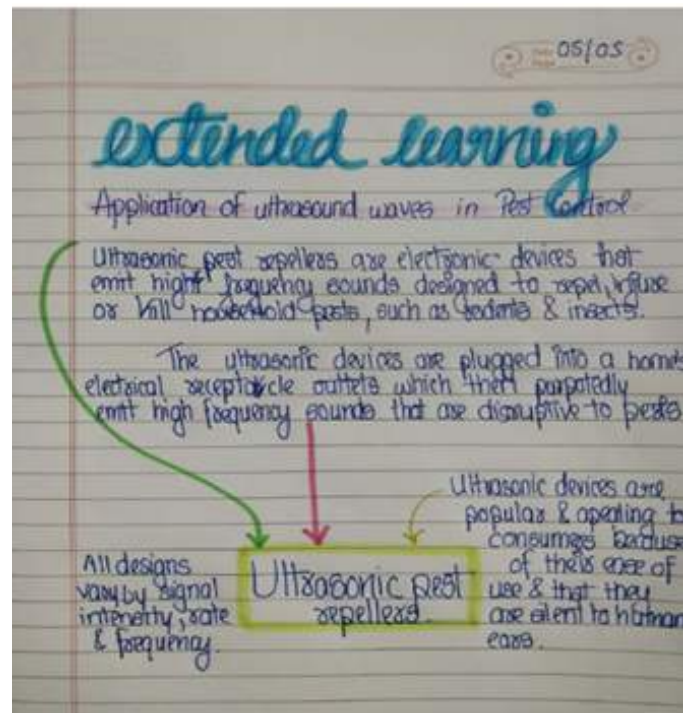 05/05
extended learning
Application of ultrasound waves in Pest Control
Ultrasonic pest repellers are electronic devices that
emit high frequency sounds designed to repel, injure
or kill household pests, such as rodents & insects.
The ultrasonic devices are plugged into a home's
electrical receptaicle outlets which then purpotedly
emit high frequency sounds that are disruptive to pests
Ultrasonic devices are
popular & apealing to
consumers because
of their ease of
use & that they
are silent to human
ears.
All designs
vary by signal
intensity, rate
& frequency.
Ultrasonic pest
repellers.